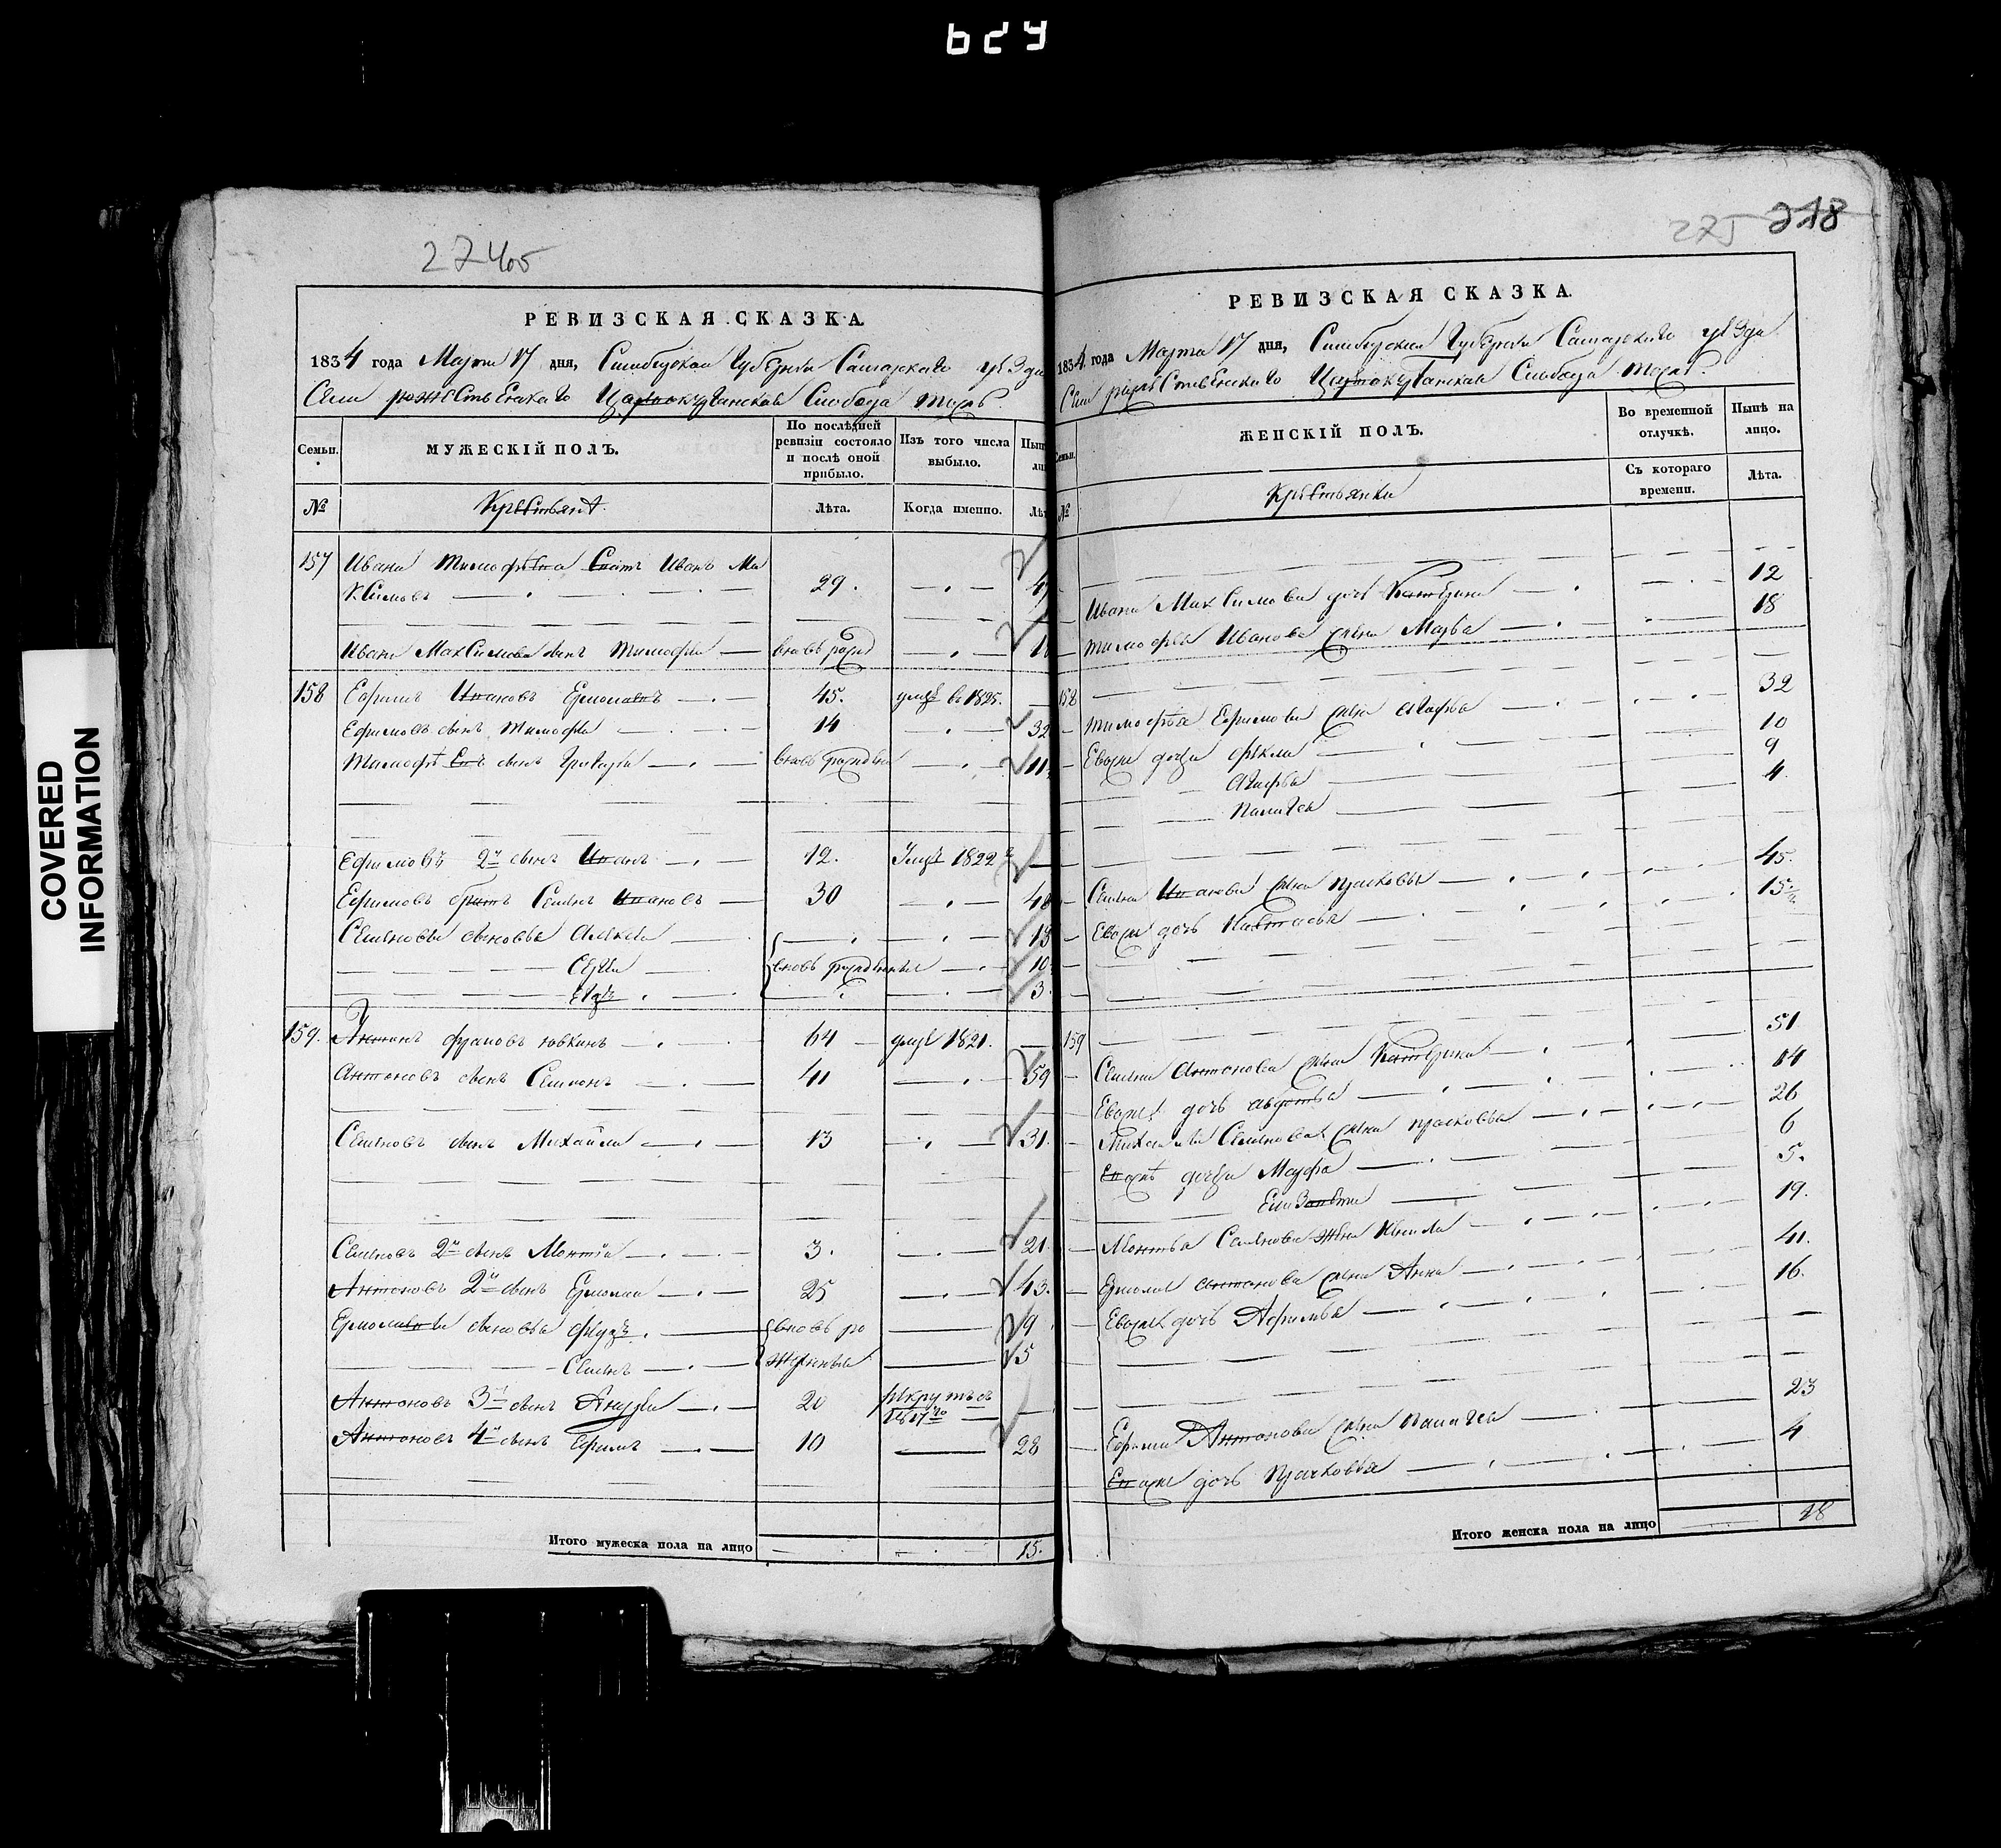 624
274об
РЕВИЗСКАЯ СКАЗКА.
1834 года Марта 17 дня, Симбирской Губернии Самарского уезда
Села рожественскаго Царевокурганская Слобода тожъ.
Семьи.
МУЖЕСКІЙ ПОЛЪ.
По послѣдней ревизіи состояло и послѣ оной прибыло.
Изъ того числа выбыло.
№
Крестьянъ
Лѣта.
Когда именно.
157 Ивана Тимофеева Иванъ Ма
ксимовъ 29. 47
Ивана Максимова сынъ Тимофей вновь рожд
158 Ефимъ Ивановъ Ермолаевъ 45. умре въ 1825.
Ефимовъ сынъ Тимофей 14 32
Тимофея сынъ Григорей вновь рожденъ 11
Ефимовъ 2й сынъ Иванъ 12. Умре 1822
Ефимовъ братъ Семенъ Ивановъ 30 48
Семеновы сыновья Алексей 13
Сергей вновь рожденные 10
3
159. Антонъ ювкинъ 64 умре 1821.
Антоновъ сынъ Семионъ 41 59
Семеновъ сынъ Михайла 13 31.
Семеновъ 2й сынъ 3. 21.
Антоновъ 2й сынъ Ермолай 25 43.
Ермолаевы сыновья вновь ро 9
Семенъ жденные 5
Антоновъ 3й сынъ Андрей 20 рекрутъ съ 1817го
Антоновъ 4й сынъ Ефимъ 10 28
Итого мужеска пола на лицо 15.
275 218
РЕВИЗСКАЯ СКАЗКА.
1834 года Марта 17 дня, Симбирской Губернии Самарского уезда
Села рожественскаго Царевокурганская Слобода тожъ.
Семьи.
ЖЕНСКІЙ ПОЛЪ.
Во временной отлучкѣ.
Нынѣ на лицо.
№
Крестьянки
Съ котораго времени.
Лѣта.
Ивана Максимова дочь Катерина 12
Тимофея Иванова жена Марья 18
158
Тимофея Ефимова жена Агафья 32
Евоже дочери Фекла 10
Агафья 9
Палагея 4.
Семена Иванова жена Прасковья 45.
Евоже дочь Настасья 15
159
Семена Антонова жена Катерина 51
Евоже дочь Авдотья 14
Михаилы Семенова жена Прасковья 26
Евоже дочери Марфа 6
Елизавета 5.
Семенова жена 19.
Ермолая Антонова жена Анна 41.
Евоже дочь Афимья 16.
Ефима Антонова жена Палагея 23
Евоже дочь Прасковья 4
Итого женска пола на лицо 18
COVERED
INFORMATION